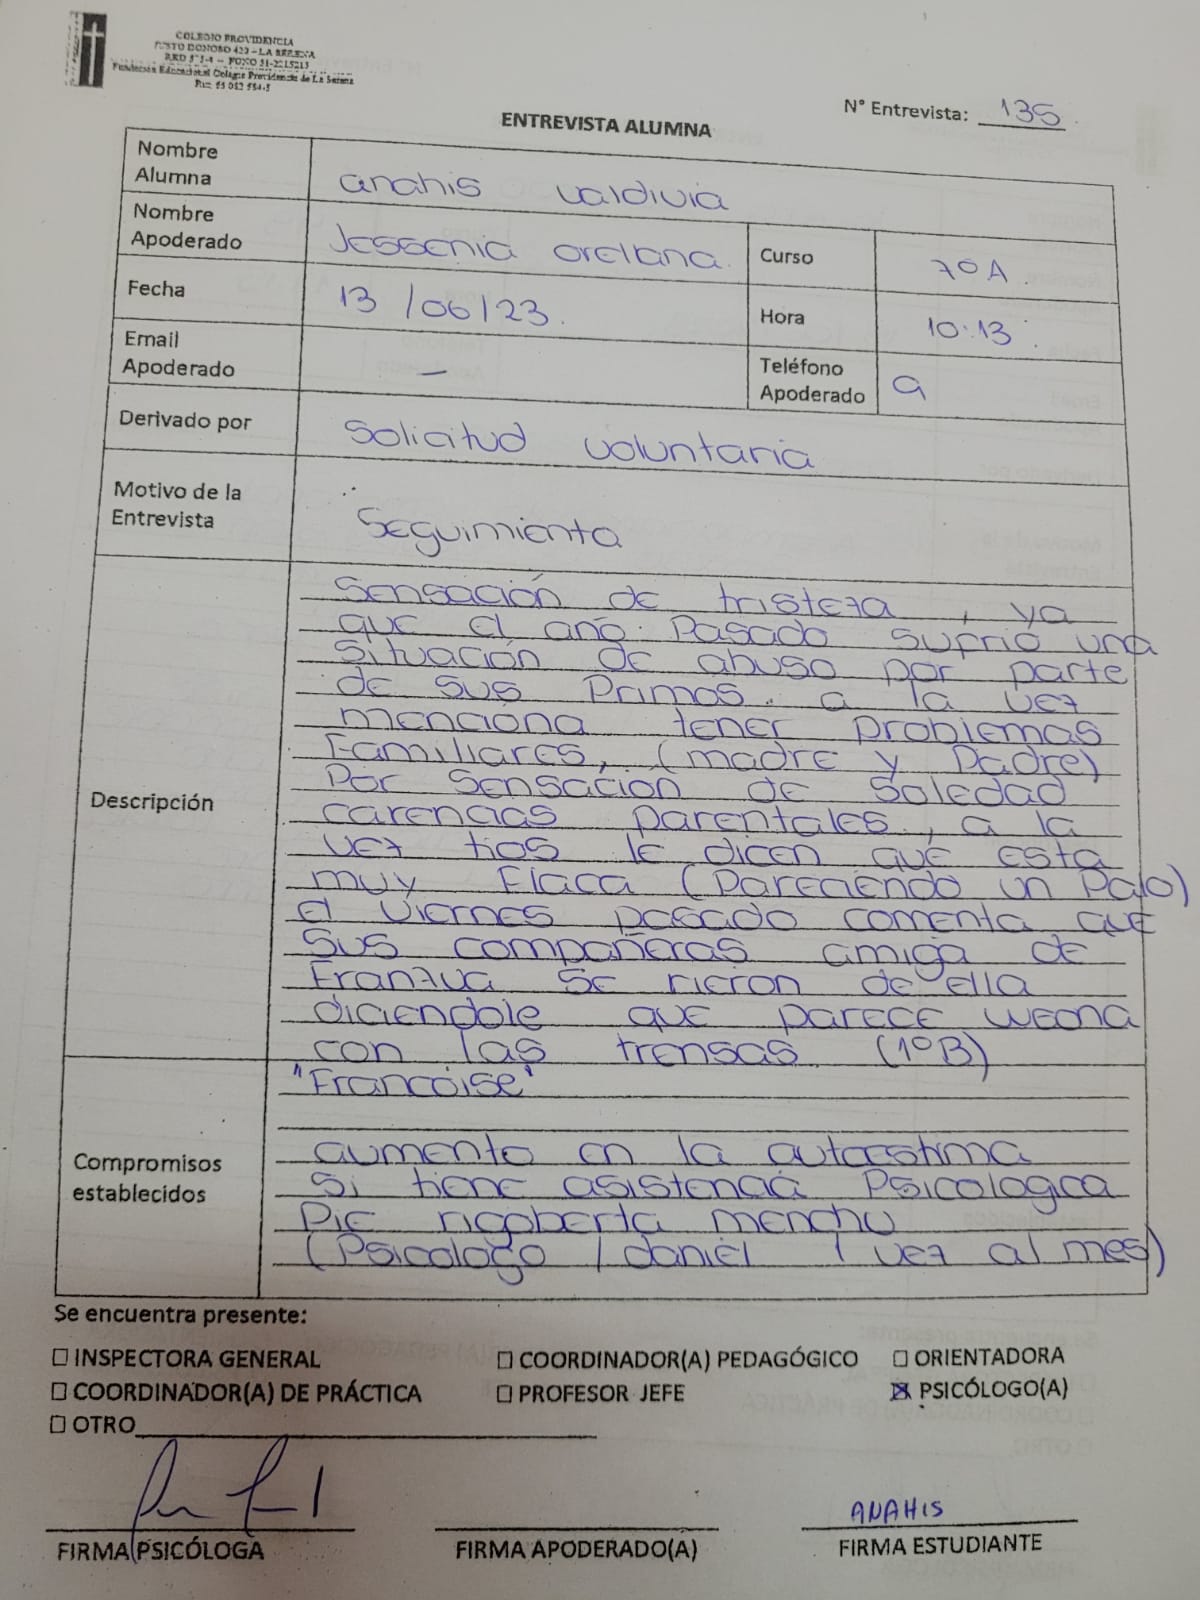 COLEGIO PROVIDENCIA
JUSTO DONOSO 420 - LA SERENA
Fundación Educacional Colegio Providencia de La Serena
N° Entrevista: 135
ENTREVISTA ALUMNA
Nombre Alumna anahis valdivia
Nombre Apoderado Jessenia orellana. Curso 7°A
Fecha 13/06/23. Hora 10:13
Email Apoderado — Teléfono Apoderado
Derivado por Solicitud voluntaria
Motivo de la Entrevista Seguimiento
Descripción
Sensación de tristeza, ya
que el año pasado sufrio una
situación de abuso por parte
de sus Primos. a la vez
menciona tener problemas
Familiares, (madre y Padre)
Por sensación de Soledad
carencias parentales, a la
vez tios le dicen que esta
muy Flaca (Pareciendo un Palo)
el viernes pasado comenta que
sus compañeras amiga de
Franzua se rieron de ella
diciendole que parece weona
con las trensas. (1°B)
"Francoise"
Compromisos establecidos
aumento en la autoestima
Si tiene asistencia Psicologica
Pie rigoberta menchu
(Psicologo / daniel 1 vez al mes)
Se encuentra presente:
INSPECTORA GENERAL COORDINADOR(A) PEDAGÓGICO ORIENTADORA
COORDINADOR(A) DE PRÁCTICA PROFESOR JEFE PSICÓLOGO(A)
OTRO
ANAHIS
FIRMA PSICÓLOGA FIRMA APODERADO(A) FIRMA ESTUDIANTE